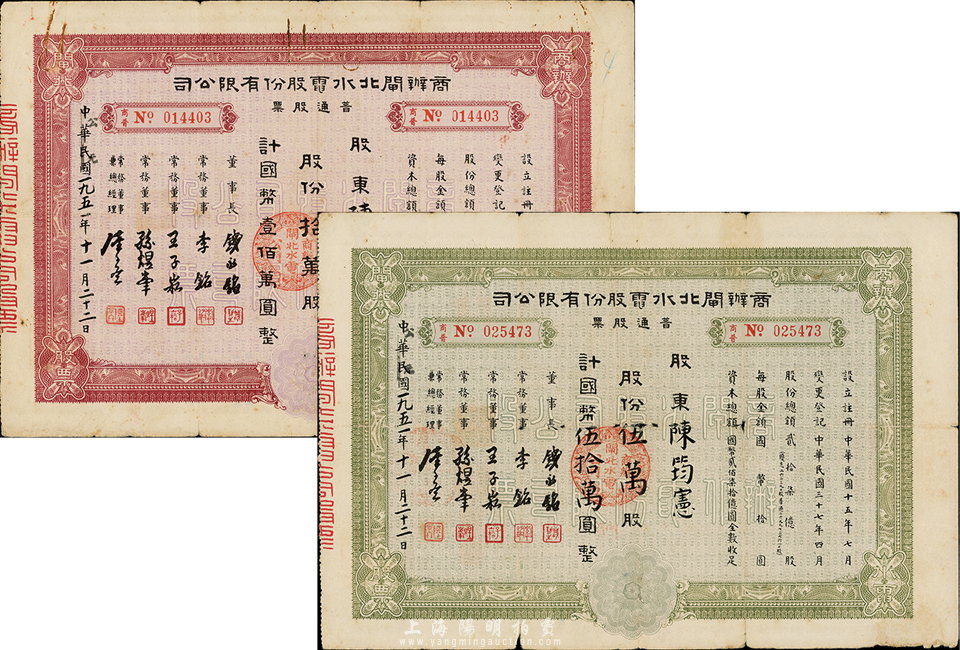 商辦閘北水電股份有限公司
普通股票
商普 № 014403
商普 № 014403
設立註冊
變更登記
股份總額
每股金額
資本總額
股東陳
股份拾萬股
計國幣壹佰萬圓整
董事長
常務董事 李銘
常務董事
常務董事
常務董事兼總經理
中華民國一九五一年十一月二十二日
公元
商辦
閘北
股西
商辦閘北水電股份有限公司
普通股票
商普 № 025473
商普 № 025473
設立註冊 中華民國十五年七月
變更登記 中華民國三十七年四月
股份總額 貳拾柒億股
每股金額 國幣拾圓
資本總額 國幣貳佰柒拾億圓全數收足
股東陳筠憲
股份伍萬股
計國幣伍拾萬圓整
董事長
常務董事 李銘
常務董事
常務董事
常務董事兼總經理
中華民國一九五一年十一月二十二日
商辦
閘北
上海陽明拍賣
www.yangmingauction.com